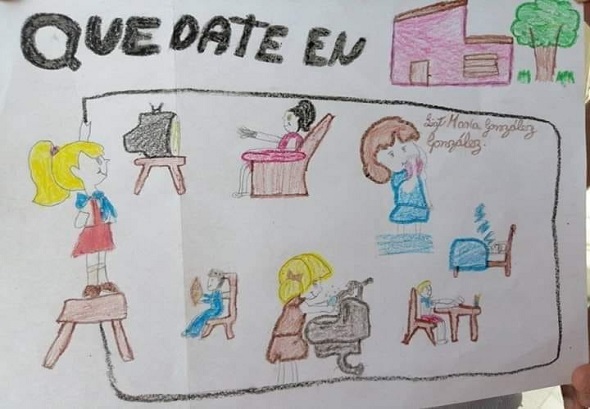 QUEDATE EN
Sgt María González
González.